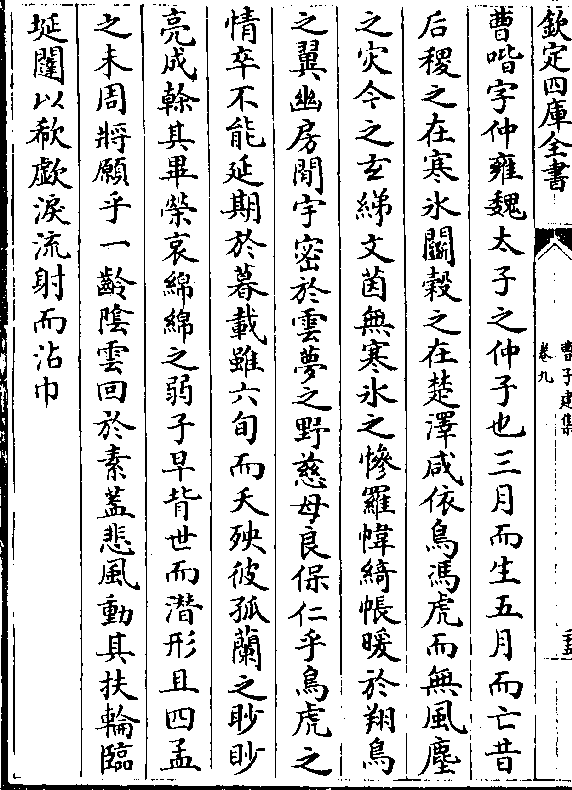 欽定四庫全書
曹子建集
卷九
曹喈字仲雍魏太子之仲子也三月而生五月而亡昔
后稷之在寒氷鬭穀之在楚澤咸依鳥馮虎而無風塵
之灾今之玄綈文茵無寒氷之慘羅幃綺帳暖於翔鳥
之翼幽房閒宇密於雲夢之野慈母良保仁乎鳥虎之
情卒不能延期於暮載雖六旬而夭殃彼孤蘭之眇眇
亮成榦其畢榮哀綿綿之弱子早背世而潜形且四孟
之未周將願乎一齡陰雲回於素蓋悲風動其扶輪臨
埏闥以欷歔淚流射而沾巾